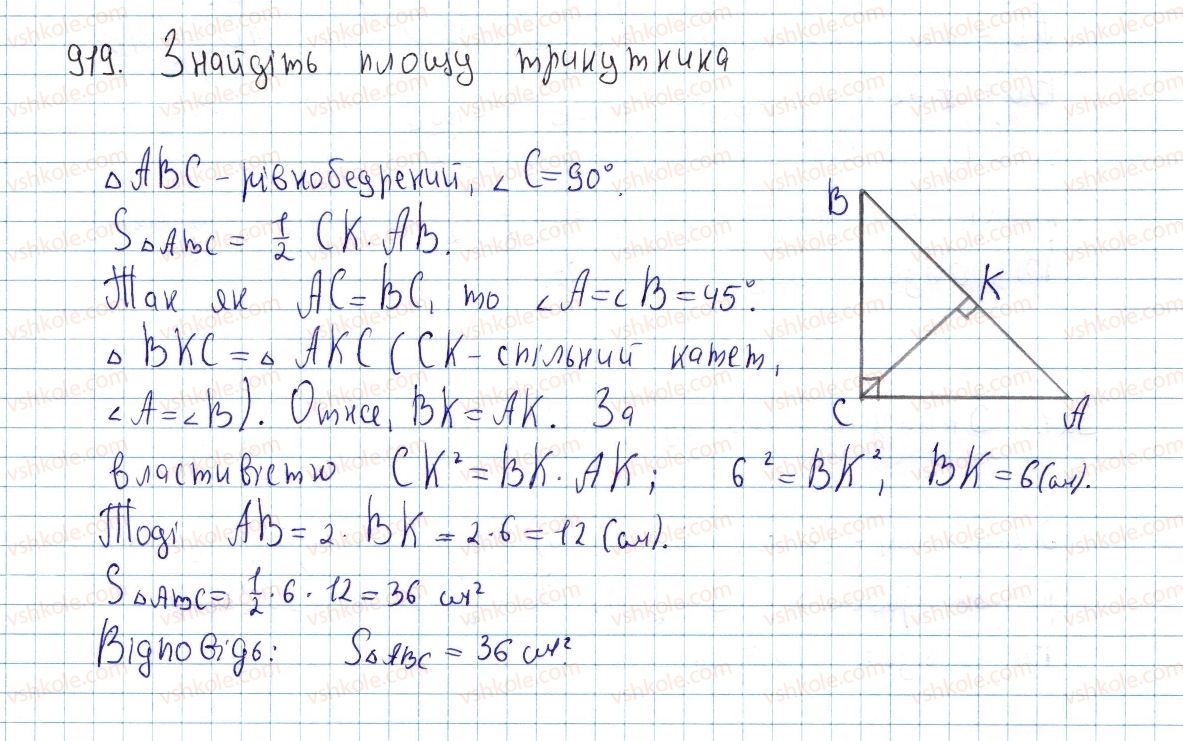 919. Знайдіть площу трикутника
△ABC - рівнобедрений, ∠C=90°.
S△ABC = 1/2 CK·AB.
Так як AC=BC, то ∠A=∠B=45°.
△BKC=△AKC (CK-спільний катет,
∠A=∠B). Отже, BK=AK. За
властивістю CK²=BK·AK; 6²=BK², BK=6(см).
Тоді AB=2·BK=2·6=12 (см).
S△ABC= 1/2·6·12=36 см²
Відповідь: S△ABC=36 см².
B
K
C
A
vshkole.com